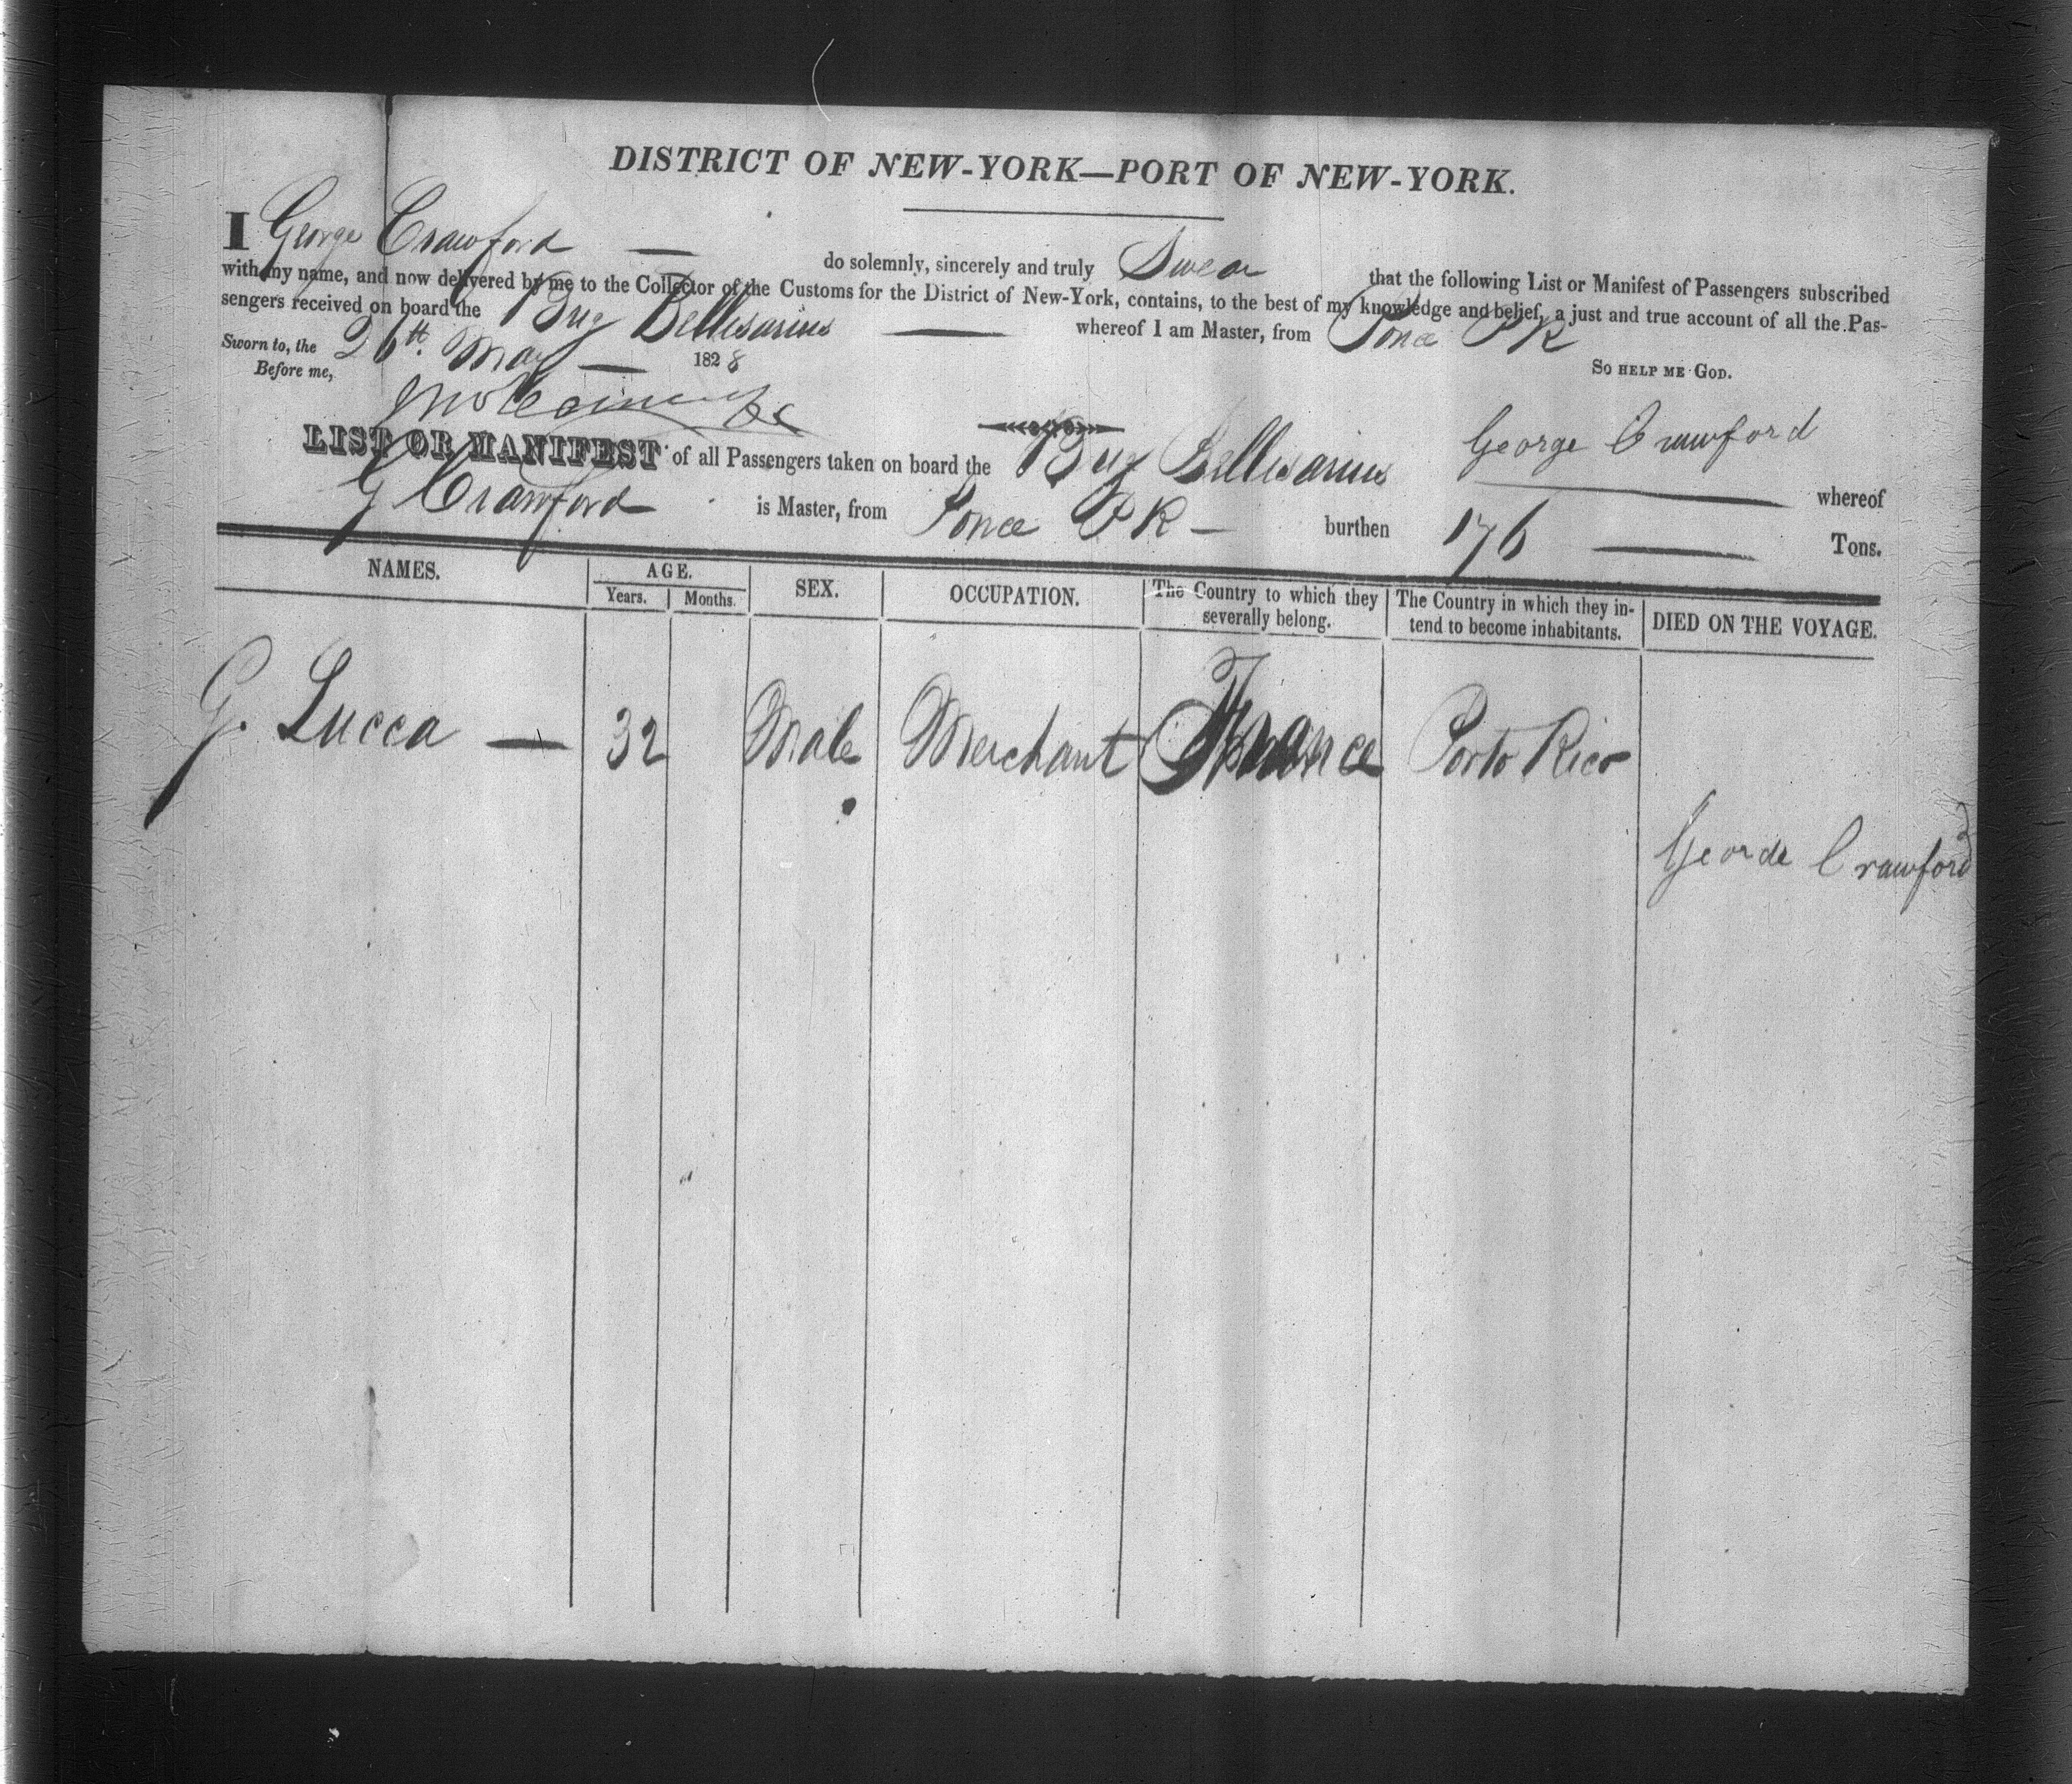 DISTRICT OF NEW-YORK—PORT OF NEW-YORK.
I George Crawford — do solemnly, sincerely and truly Swear that the following List or Manifest of Passengers subscribed
with my name, and now delivered by me to the Collector of the Customs for the District of New-York, contains, to the best of my knowledge and belief, a just and true account of all the Pas-
sengers received on board the Brig Bellisarius — whereof I am Master, from Ponce P R
Sworn to, the 26th. May — 1828 So help me God.
Before me,
George Crawford
LIST OR MANIFEST of all Passengers taken on board the Brig Bellisarius — whereof
G Crawford is Master, from Ponce P R — burthen 176 — Tons.
NAMES. AGE. SEX. OCCUPATION. The Country to which they severally belong. The Country in which they in- tend to become inhabitants. DIED ON THE VOYAGE.
Years. Months.
G. Lucca — 32 Male Merchant France Porto Rico
George Crawford